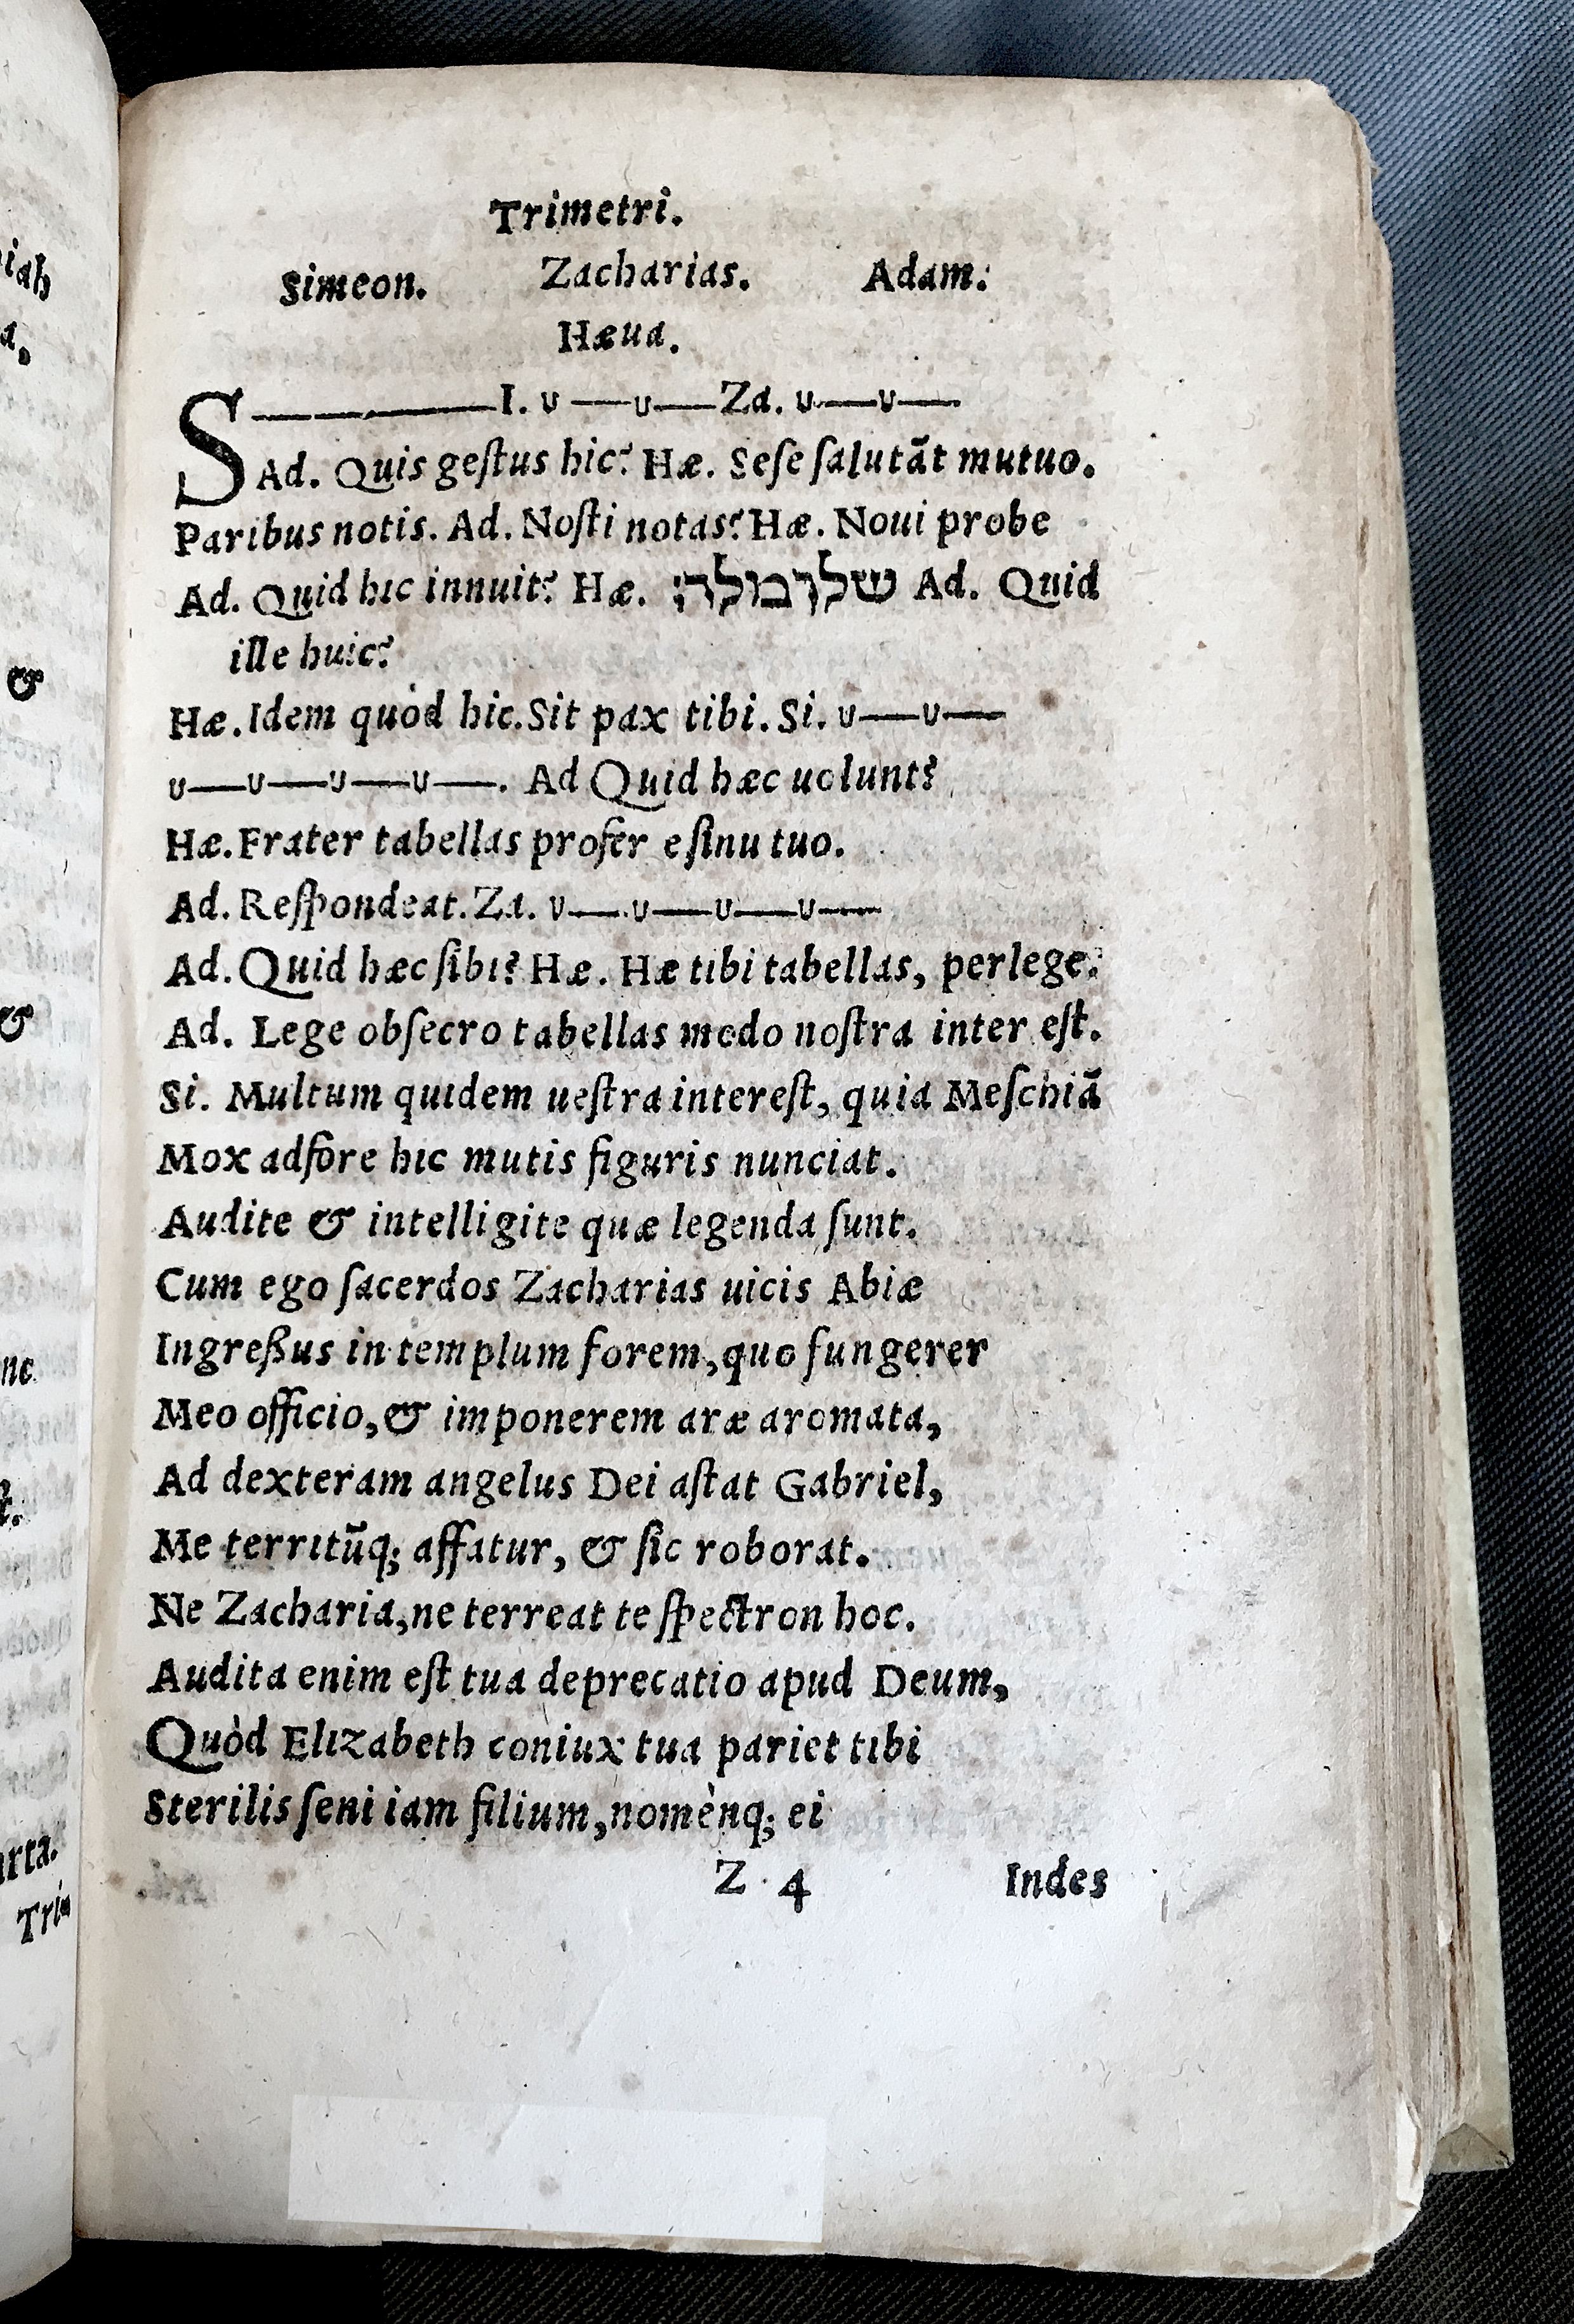 Trimetri.
Simeon. Zacharias. Adam.
Hæua.
S————I. u —u—Za. u—u—
Ad. Quis geſtus hic? Hæ. Seſe ſalutãt mutuo.
Paribus notis. Ad. Noſti notas? Hæ. Noui probe
Ad. Quid hic innuit? Hæ. Ad. Quid
ille huic?
Hæ. Idem quòd hic. Sit pax tibi. Si. u—u—
u—u—u—u—. Ad Quid hæc uolunt?
Hæ. Frater tabellas profer e ſinu tuo.
Ad. Reſpondeat. Za. u—u—u—u—
Ad. Quid hæc ſibi? Hæ. Hæ tibi tabellas, perlege.
Ad. Lege obſecro tabellas modo noſtra inter eſt.
Si. Multum quidem ueſtra intereſt, quia Meſchiã
Mox adfore hic mutis figuris nunciat.
Audite & intelligite quæ legenda ſunt.
Cum ego ſacerdos Zacharias uicis Abiæ
Ingreßus in templum forem, quo fungerer
Meo officio, & imponerem aræ aromata,
Ad dexteram angelus Dei aſtat Gabriel,
Me territũq; affatur, & ſic roborat.
Ne Zacharia, ne terreat te ſpectron hoc.
Audita enim eſt tua deprecatio apud Deum,
Quòd Elizabeth coniux tua pariet tibi
Sterilis ſeni iam filium, nomènq; ei
Z 4 Indes
iah
a,
&
&
nc
arta.
Tri